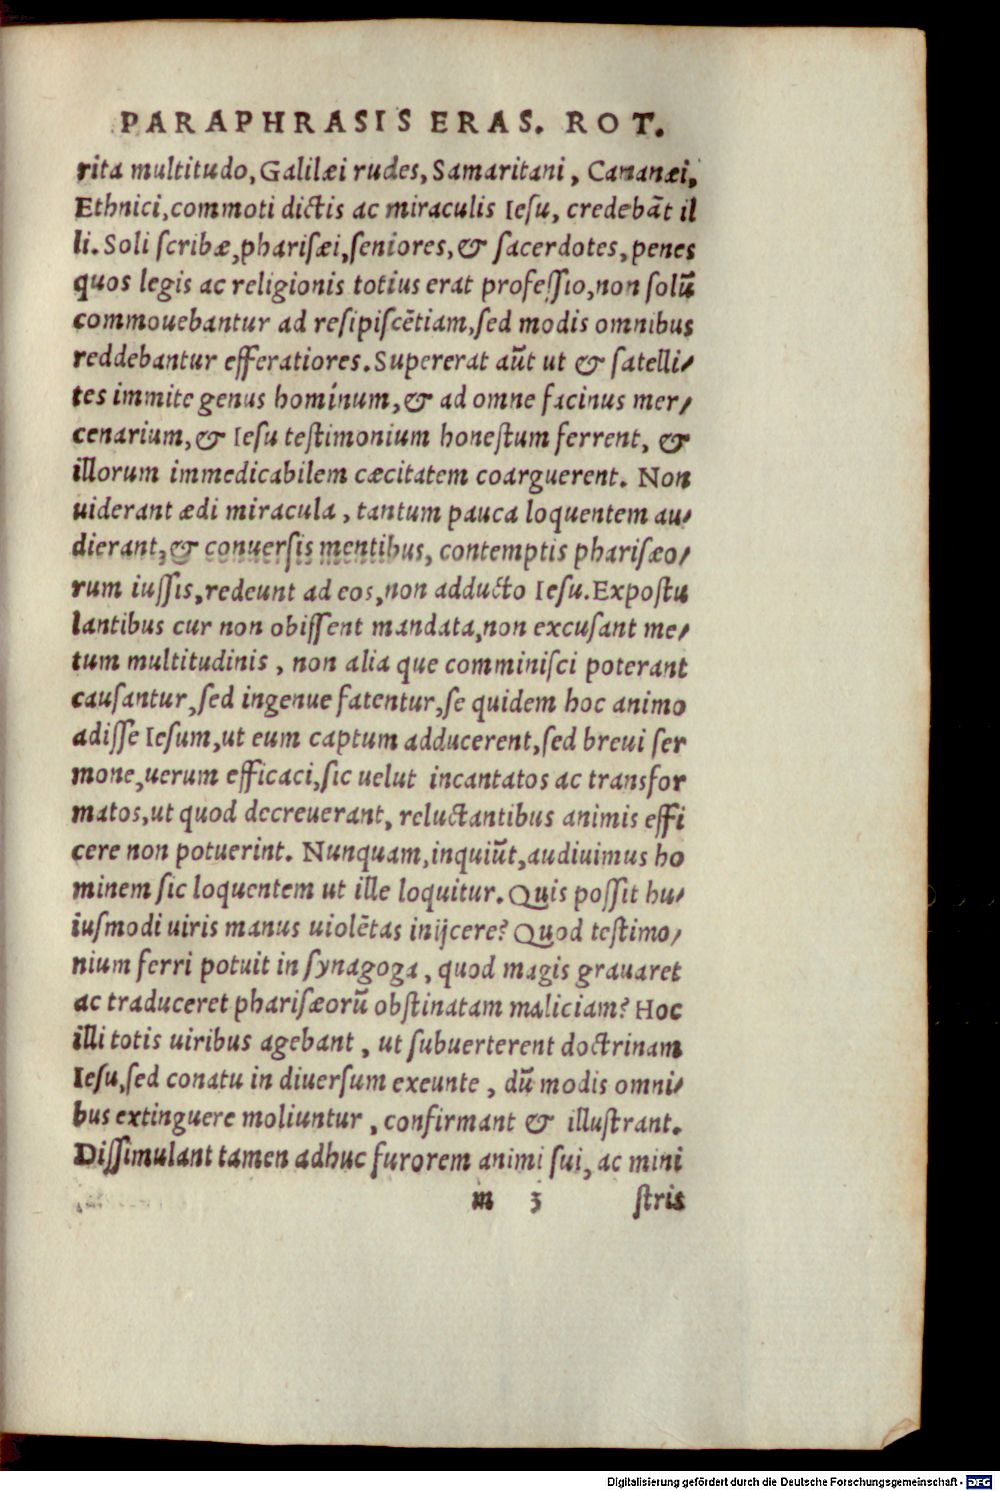 PARAPHRASIS ERAS. ROT.
rita multitudo, Galilæi rudes, Samaritani, Cananæi,
Ethnici, commoti dictis ac miraculis Iesu, credebāt il
li. Soli ſcribæ, phariſæi, ſeniores, & ſacerdotes, penes
quos legis ac religionis totius erat profeſſio, non ſolū
commouebantur ad reſipiſcētiam, ſed modis omnibus
reddebantur efferatiores. Supererat aūt ut & ſatelli/
tes immite genus hominum, & ad omne facinus mer/
cenarium, & Ieſu teſtimonium honeſtum ferrent, &
illorum immedicabilem cæcitatem coarguerent. Non
uiderant ædi miracula, tantum pauca loquentem au/
dierant, & conuerſis mentibus, contemptis phariſæo/
rum iuſſis, redeunt ad eos, non adducto Ieſu. Expoſtu
lantibus cur non obiſſent mandata, non excuſant me/
tum multitudinis, non alia que comminiſci poterant
cauſantur, ſed ingenue fatentur, ſe quidem hoc animo
adiſſe Ieſum, ut eum captum adducerent, ſed breui ſer
mone, uerum efficaci, ſic uelut incantatos ac transfor
matos, ut quod decreuerant, reluctantibus animis effi
cere non potuerint. Nunquam, inquiūt, audiuimus ho
minem ſic loquentem ut ille loquitur. Quis poſſit hu/
iuſmodi uiris manus uiolētas inijcere? Quod teſtimo/
nium ferri potuit in ſynagoga, quod magis grauaret
ac traduceret phariſæorū obſtinatam maliciam? Hoc
illi totis uiribus agebant, ut ſubuerterent doctrinam
Ieſu, ſed conatu in diuerſum exeunte, dū modis omni/
bus extinguere moliuntur, confirmant & illuſtrant.
Diſſimulant tamen adhuc furorem animi ſui, ac mini
m 3 ſtris
Digitalisierung gefördert durch die Deutsche Forschungsgemeinschaft - DFG